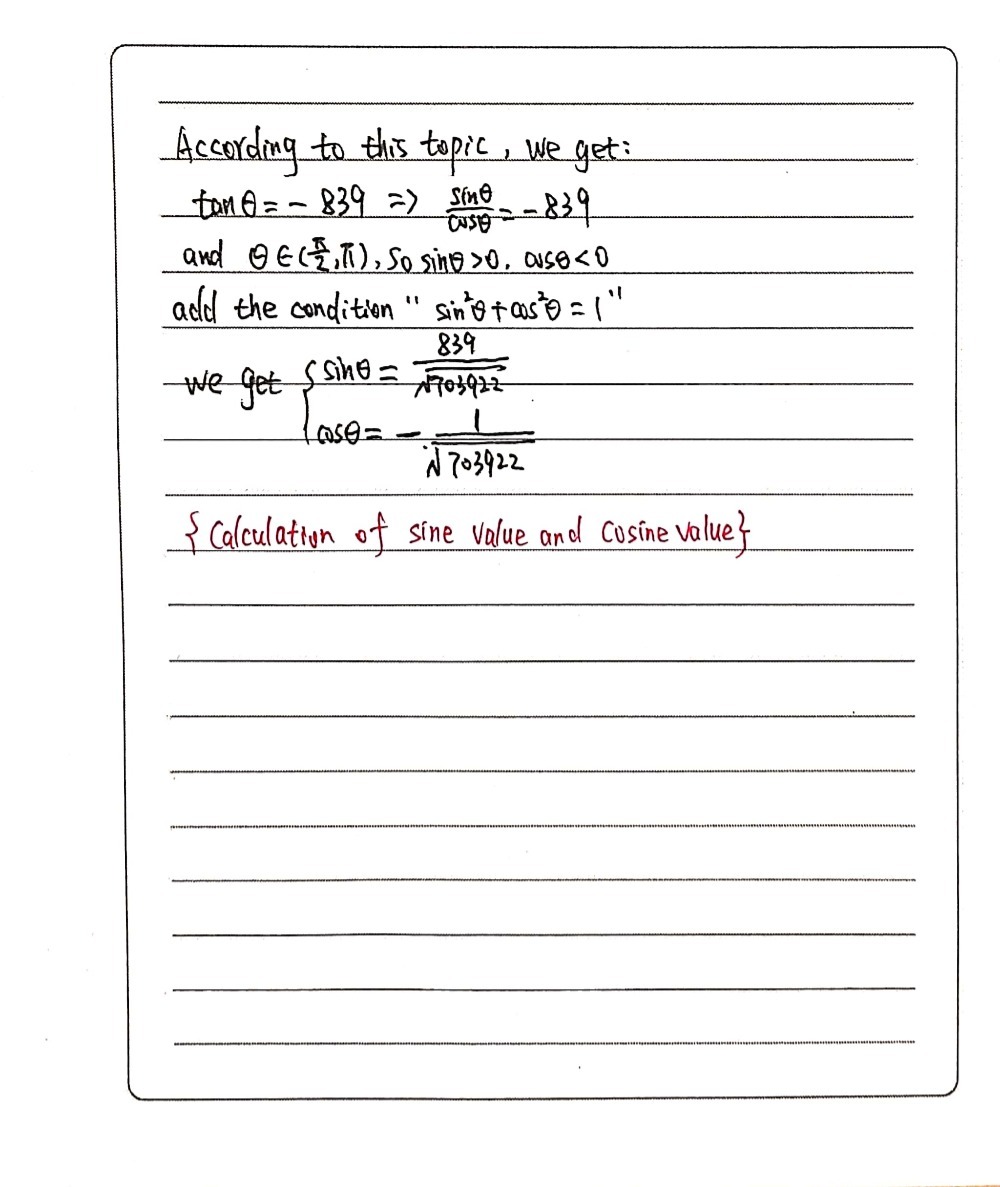 According to this topic, we get:
tanθ = - 839 => sinθ/cosθ = - 839
and θ∈(π/2,π), So sinθ>0, cosθ<0
add the condition " sin²θ+cos²θ = 1"
we get { sinθ = 839/√703922
cosθ = - 1/√703922
{Calculation of sine value and cosine value}